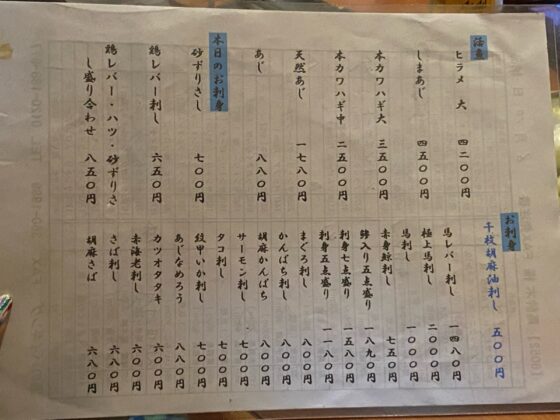 活魚
ヒラメ 大 四二〇〇円
しまあじ 四五〇〇円
本カワハギ大 三五〇〇円
本カワハギ中 二五〇〇円
天然あじ 一七八〇円
あじ 八八〇円
本日のお刺身
砂ずりさし 七〇〇円
鶏レバー刺し 六五〇円
鶏レバー・ハツ・砂ずりさ
し盛り合わせ 八五〇円
お刺身
千枚胡麻油刺し 五〇〇円
馬レバー刺し 一四八〇円
極上馬刺し 二〇〇〇円
馬刺し 一〇〇〇円
赤身鯨刺し 七五〇円
入り五点盛り 一八九〇円
刺身七点盛り 一五八〇円
刺身五点盛り 一一八〇円
まぐろ刺し 八〇〇円
かんぱち刺し 八〇〇円
胡麻かんぱち 八八〇円
サーモン刺し 七〇〇円
タコ刺し 七〇〇円
紋甲いか刺し 七〇〇円
あじなめろう 八八〇円
カツオタタキ 六〇〇円
赤海老刺し 六八〇円
さば刺し 六八〇円
胡麻さば 六八〇円